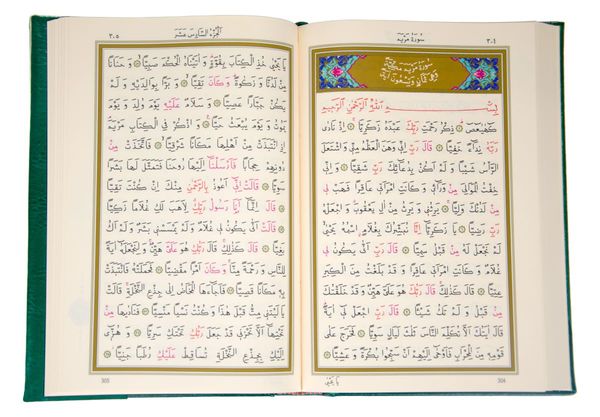 سُورَةُ مَرْيَمَ ٣٠٤
سُورَةُ مَرْيَمَ مَكِّيَّةٌ
وَهِيَ ثَمَانٌ وَتِسْعُونَ آيَةً
بِسْمِ اللّٰهِ الرَّحْمٰنِ الرَّحِيمِ
كٓهٰيٰعٓصٓ ۝ ذِكْرُ رَحْمَتِ رَبِّكَ عَبْدَهُ زَكَرِيَّا ۝ اِذْ نَادٰى
رَبَّهُ نِدَٓاءً خَفِيًّا ۝ قَالَ رَبِّ اِنِّي وَهَنَ الْعَظْمُ مِنِّي وَاشْتَعَلَ
الرَّأْسُ شَيْبًا وَلَمْ اَكُنْ بِدُعَٓائِكَ رَبِّ شَقِيًّا ۝ وَاِنِّي
خِفْتُ الْمَوَالِيَ مِنْ وَرَٓائِي وَكَانَتِ امْرَاَتِي عَاقِرًا فَهَبْ لِي
مِنْ لَدُنْكَ وَلِيًّا ۝ يَرِثُنِي وَيَرِثُ مِنْ اٰلِ يَعْقُوبَ وَاجْعَلْهُ
رَبِّ رَضِيًّا ۝ يَا زَكَرِيَّٓا اِنَّا نُبَشِّرُكَ بِغُلَامٍ اسْمُهُ يَحْيٰى
لَمْ نَجْعَلْ لَهُ مِنْ قَبْلُ سَمِيًّا ۝ قَالَ رَبِّ اَنّٰى يَكُونُ لِي
غُلَامٌ وَكَانَتِ امْرَاَتِي عَاقِرًا وَقَدْ بَلَغْتُ مِنَ الْكِبَرِ
عِتِيًّا ۝ قَالَ كَذٰلِكَ قَالَ رَبُّكَ هُوَ عَلَيَّ هَيِّنٌ وَقَدْ خَلَقْتُكَ
مِنْ قَبْلُ وَلَمْ تَكُ شَيْـًٔا ۝ قَالَ رَبِّ اجْعَلْ لِي اٰيَةً
قَالَ اٰيَتُكَ اَلَّا تُكَلِّمَ النَّاسَ ثَلٰثَ لَيَالٍ سَوِيًّا ۝ فَخَرَجَ عَلٰى
قَوْمِهِ مِنَ الْمِحْرَابِ فَاَوْحٰٓى اِلَيْهِمْ اَنْ سَبِّحُوا بُكْرَةً وَعَشِيًّا ۝
يَا يَحْيٰى
304
اَلْجُزْءُ السَّادِسَ عَشَرَ ٣٠٥
يَا يَحْيٰى خُذِ الْكِتَابَ بِقُوَّةٍ وَاٰتَيْنَاهُ الْحُكْمَ صَبِيًّا ۝ وَحَنَانًا
مِنْ لَدُنَّا وَزَكٰوةً وَكَانَ تَقِيًّا ۝ وَبَرًّا بِوَالِدَيْهِ وَلَمْ
يَكُنْ جَبَّارًا عَصِيًّا ۝ وَسَلَامٌ عَلَيْهِ يَوْمَ وُلِدَ وَيَوْمَ
يَمُوتُ وَيَوْمَ يُبْعَثُ حَيًّا ۝ وَاذْكُرْ فِي الْكِتَابِ مَرْيَمَ
اِذِ انْتَبَذَتْ مِنْ اَهْلِهَا مَكَانًا شَرْقِيًّا ۝ فَاتَّخَذَتْ مِنْ
دُونِهِمْ حِجَابًا فَاَرْسَلْنَٓا اِلَيْهَا رُوحَنَا فَتَمَثَّلَ لَهَا بَشَرًا
سَوِيًّا ۝ قَالَتْ اِنِّي اَعُوذُ بِالرَّحْمٰنِ مِنْكَ اِنْ كُنْتَ تَقِيًّا
۝ قَالَ اِنَّمَٓا اَنَا رَسُولُ رَبِّكِ لِاَهَبَ لَكِ غُلَامًا زَكِيًّا
۝ قَالَتْ اَنّٰى يَكُونُ لِي غُلَامٌ وَلَمْ يَمْسَسْنِي بَشَرٌ وَلَمْ اَكُ
بَغِيًّا ۝ قَالَ كَذٰلِكِ قَالَ رَبُّكِ هُوَ عَلَيَّ هَيِّنٌ وَلِنَجْعَلَهُٓ اٰيَةً
لِلنَّاسِ وَرَحْمَةً مِنَّا وَكَانَ اَمْرًا مَقْضِيًّا ۝ فَحَمَلَتْهُ فَانْتَبَذَتْ
بِهِ مَكَانًا قَصِيًّا ۝ فَاَجَٓاءَهَا الْمَخَاضُ اِلٰى جِذْعِ النَّخْلَةِ قَالَتْ
يَا لَيْتَنِي مِتُّ قَبْلَ هٰذَا وَكُنْتُ نَسْيًا مَنْسِيًّا ۝ فَنَادٰيهَا مِنْ
تَحْتِهَٓا اَلَّا تَحْزَنِي قَدْ جَعَلَ رَبُّكِ تَحْتَكِ سَرِيًّا ۝ وَهُزِّي
اِلَيْكِ بِجِذْعِ النَّخْلَةِ تُسَاقِطْ عَلَيْكِ رُطَبًا جَنِيًّا ۝
305